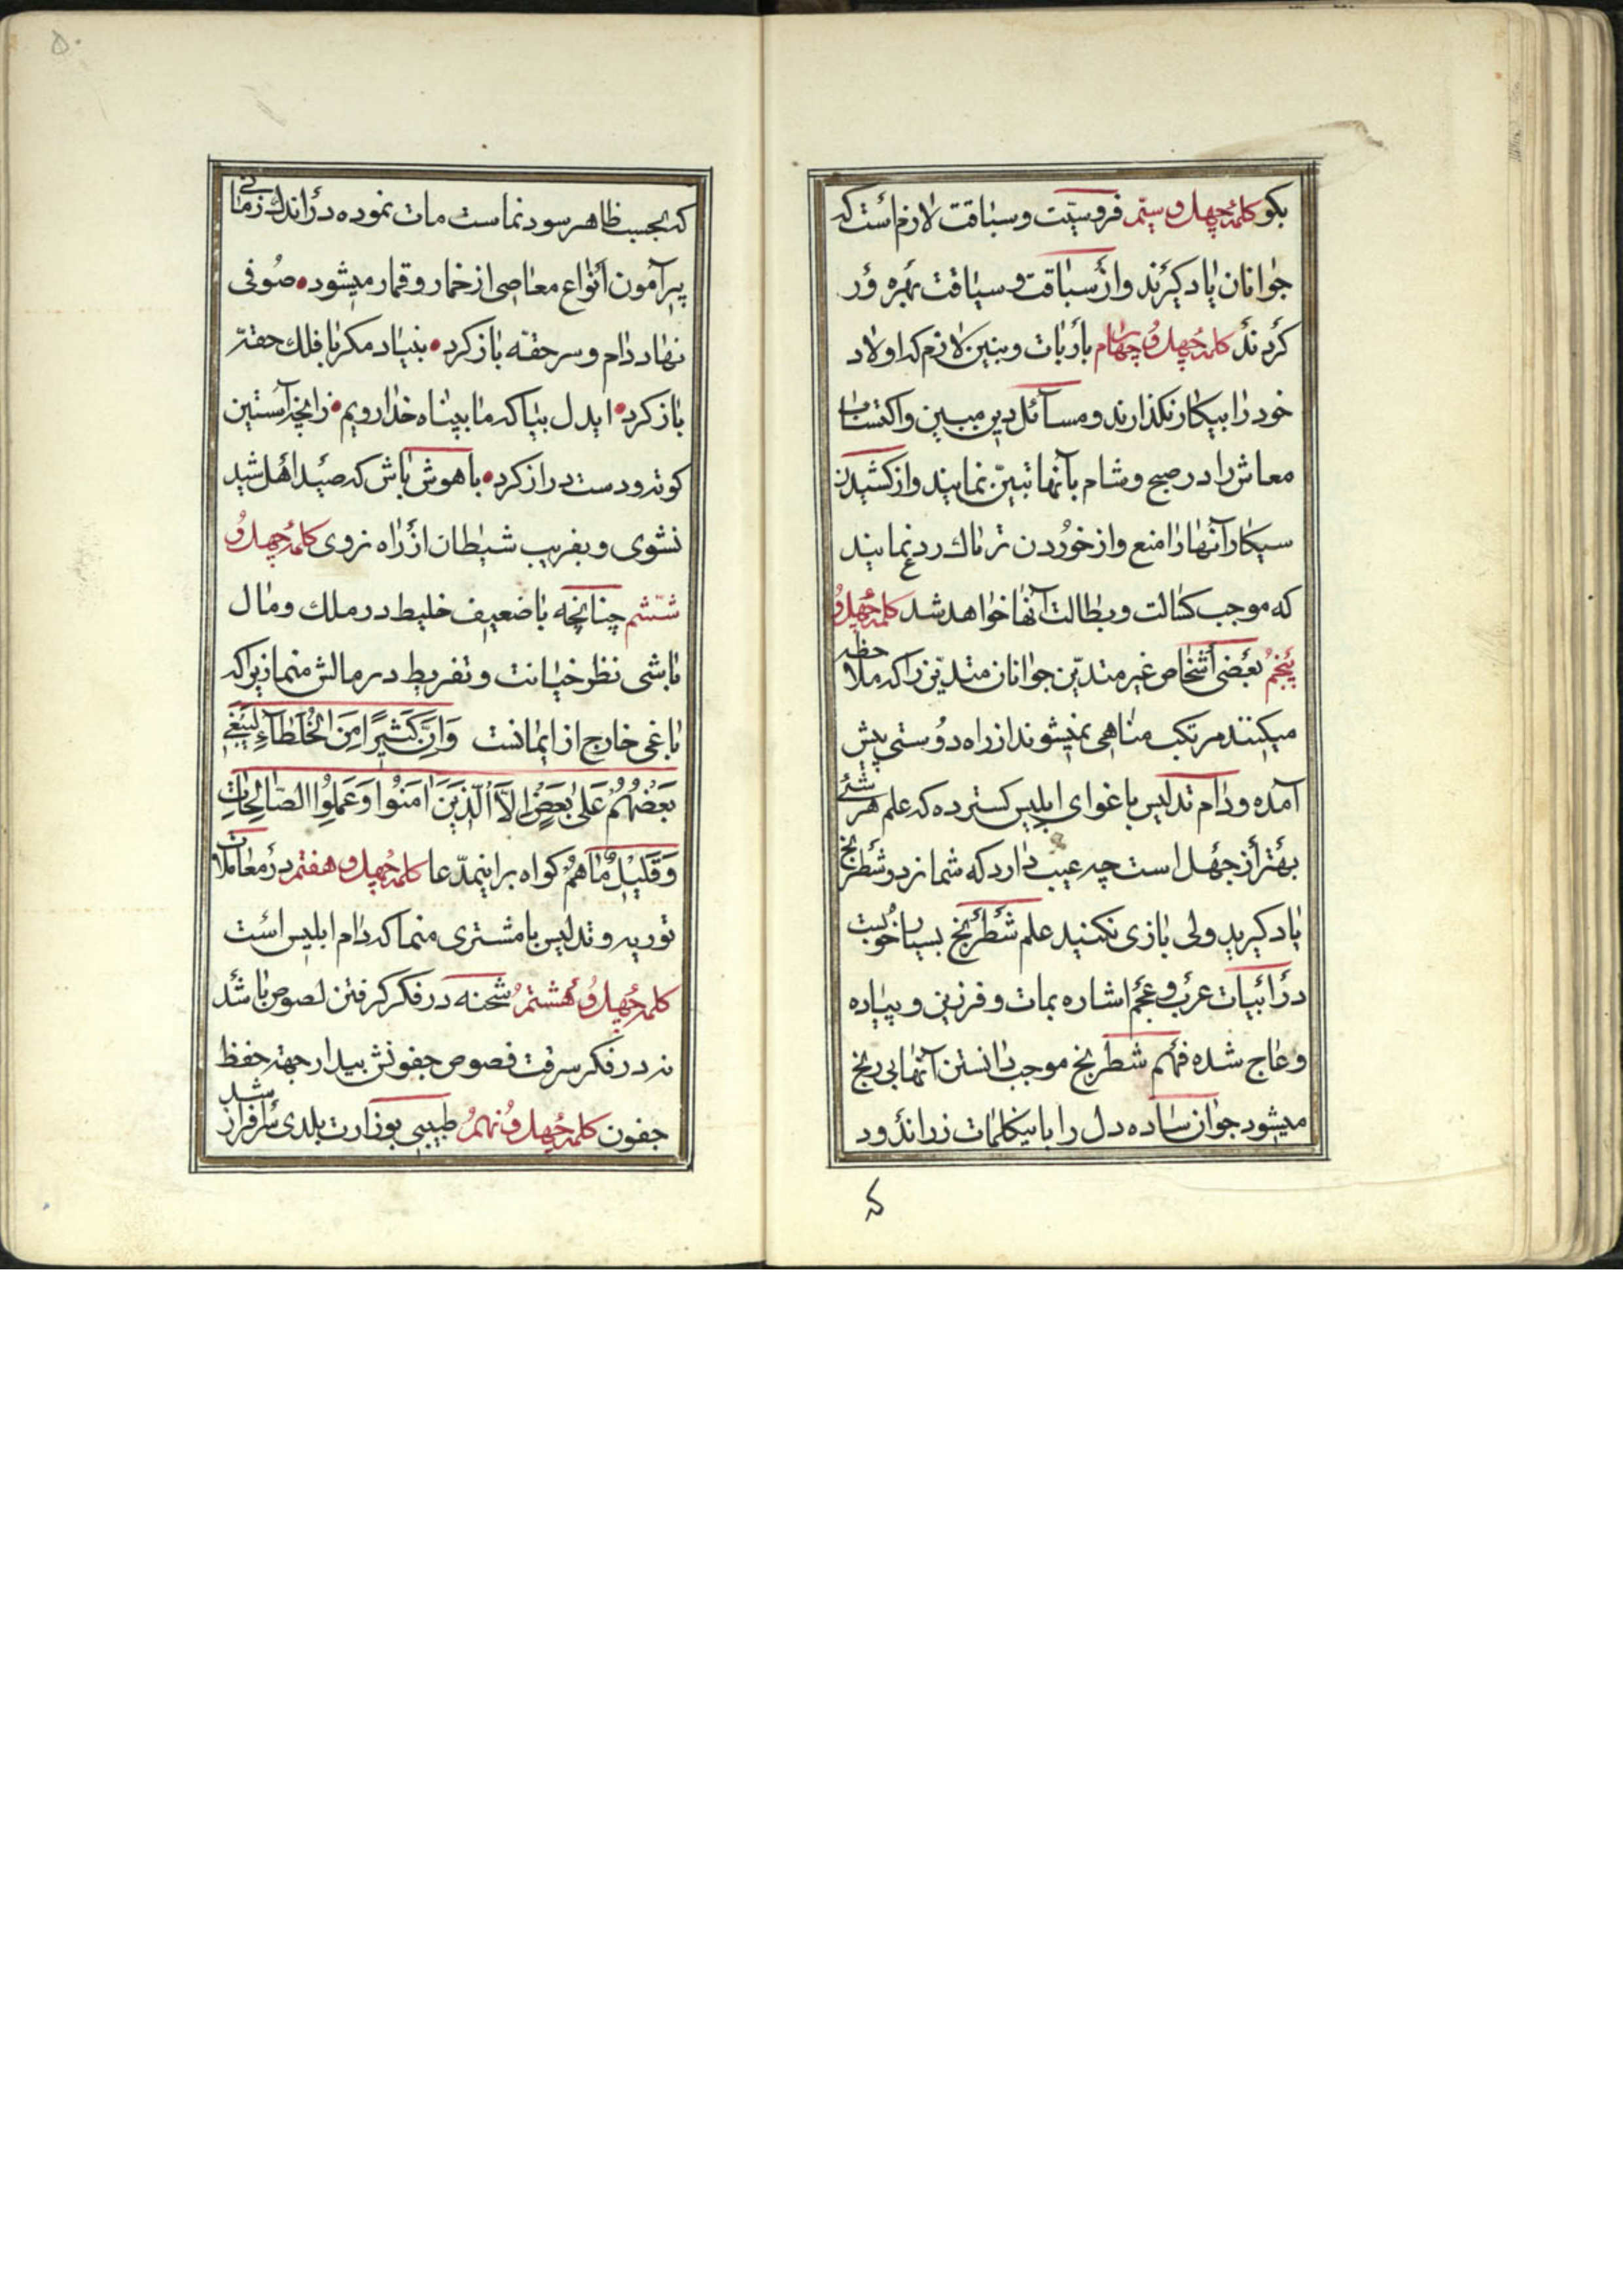 بکو کلمهٔ چهل و سیّم فروسیّت و سباقت لازم است که
جوانان یاد کیرند و از سباقت و سیاقت بهره ور
کردند کلمه چهل و چهارم بار بات و بنین لازم که اولاد
خود را بیکار نکذارند و مسائل دین مبین و اکتساب
معاش را در صبح و شام بآنها تبیّن نمایند و از کشیدن
سیکار آنها را منع و از خوردن تریاک ردع نمایند
که موجب کسالت و بطالت آنها خواهد شد کلمه چهل و
پنجم بعضی اشخاص غیر متدیّن جوانان متدیّن را که ملاحظه
میکنند مرتکب مناهی نمیشوند از راه دوستی پیش
آمده و دام تدلیس باغوای ابلیس کسترده که علم هر شئے
بهتر از جهل است چه عیب دارد که شما نرد و شطرنج
یاد کیرید ولی بازی نکنید علم شطرنج بسیار خوبست
در ابیات عرب و عجم اشاره بمات و فرزین و پیاده
و عاج شده فهم شطرنج موجب دانستن آنها بی رنج
میشود جوان ساده دل را باینکلمات زراندود
که
۵۰
که بحسب ظاهر سود نماست مات نموده در اندک زمانی
پیرآمون انواع معاصی از خمار و قمار میشود • صوفی
نهاد دام و سر حقه باز کرد • بنیاد مکر با فلک حقه
باز کرد • ایدل بیا که ما بپناه خدا رویم • زانچه آستین
کوته و دست دراز کرد • باهوش باش که صید اهل شید
نشوی و بفریب شیطان از راه نروی کلمه چهل و
ششم چنانچه با ضعیف خلیط در ملک و مال
باشی نظر خیانت و تفریط در مالش منما زیرا که
باغی خارج از ایمانست وَاِنَّ کَثیرًا مِنَ الْخُلَطآءِ لَیَبْغی
بَعْضُهُمْ عَلی بَعْضٍ اِلاَّ الَّذینَ امَنُوا وَعَمِلُوا الصّالِحاتِ
وَقَلیلٌ ماهُمْ کواه براینمدّعا کلمه چهل و هفتم در معاملات
توریه و تدلیس با مشتری منما که دام ابلیس است
کلمه چهل و هشتم شحنه در فکر کرفتن لصوص باشد
نه در فکر سرقت فصوص جفونش بیدار جهته حفظ
جفون کلمه چهل و نهم طبیبی بوزارت بلدی سرافراز شد